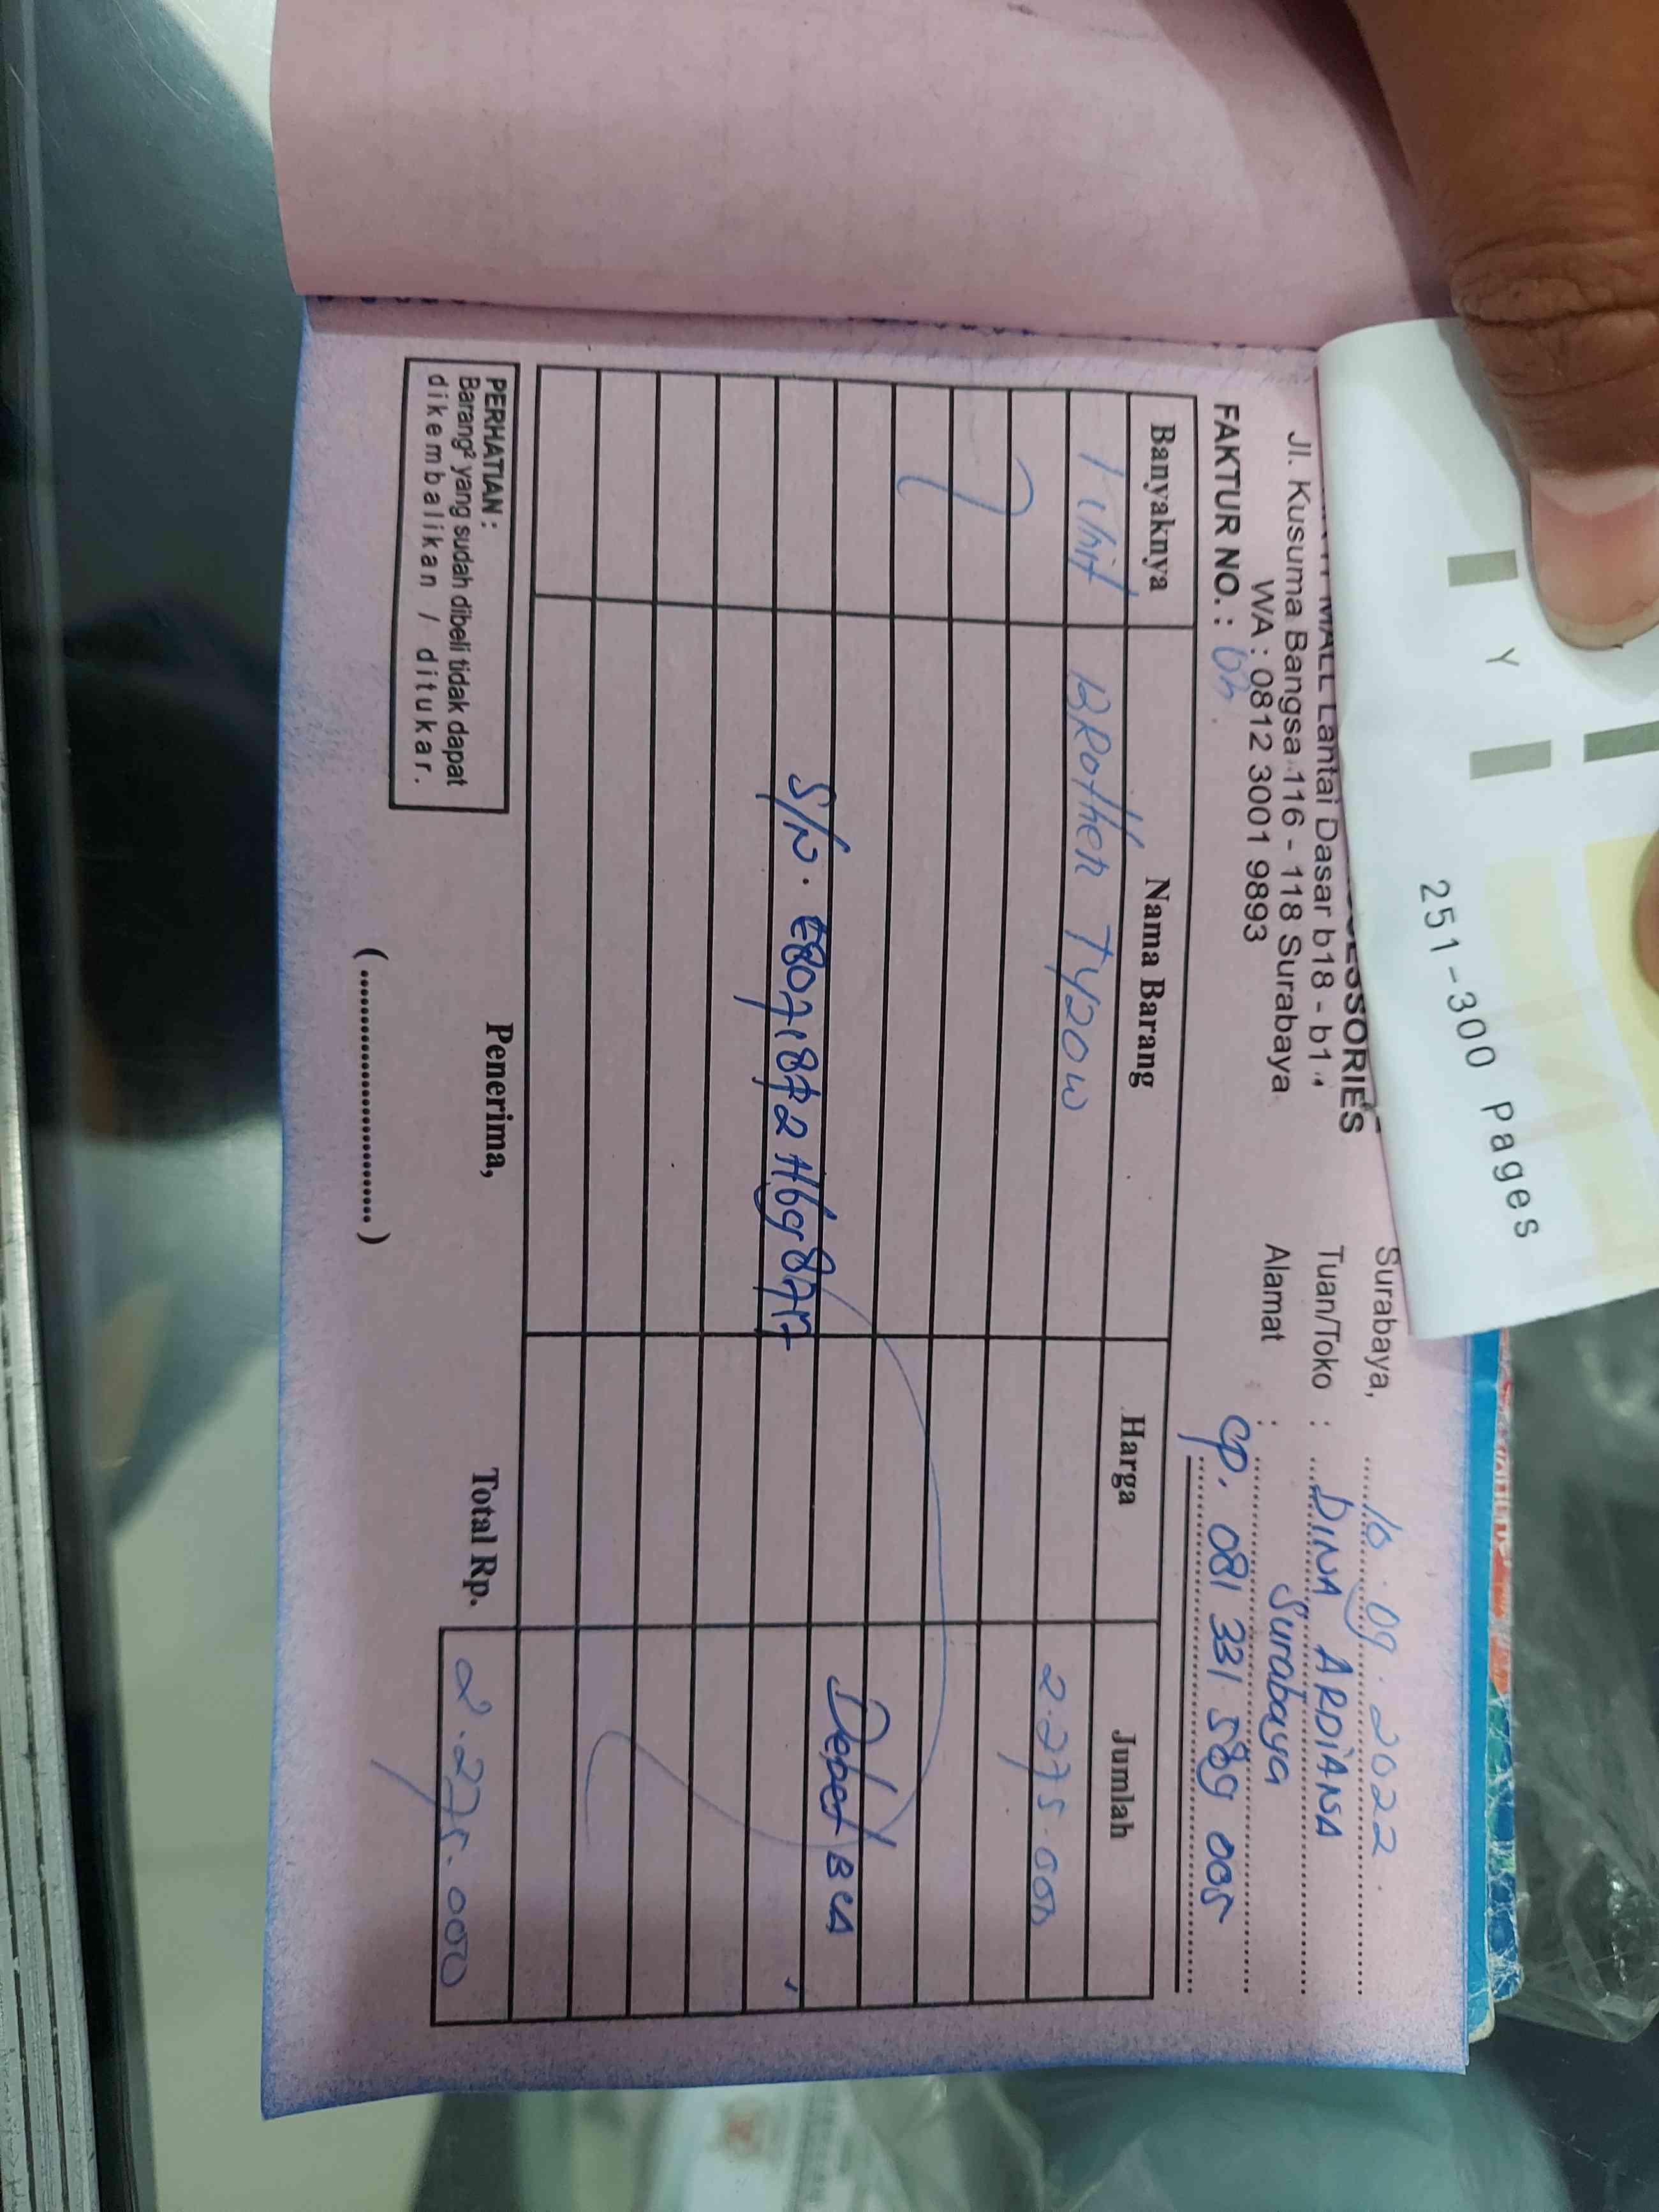 Y
251-300 pages
SSORIES
MALL Lantai Dasar b18 - b1
Jl. Kusuma Bangsa 116 - 118 Surabaya
WA : 0812 3001 9893
Surabaya, 10.09.2022
Tuan/Toko : DINA ARDIANA
Alamat : Surabaya
cp. 081 331 589 005
FAKTUR NO. :
Banyaknya Nama Barang Harga Jumlah
1 Unit BRother T420W 2.275.000
Debet BCA
S/N.
Total Rp. 2.275.000
Penerima,
(........................)
PERHATIAN :
Barang² yang sudah dibeli tidak dapat
dikembalikan / ditukar.